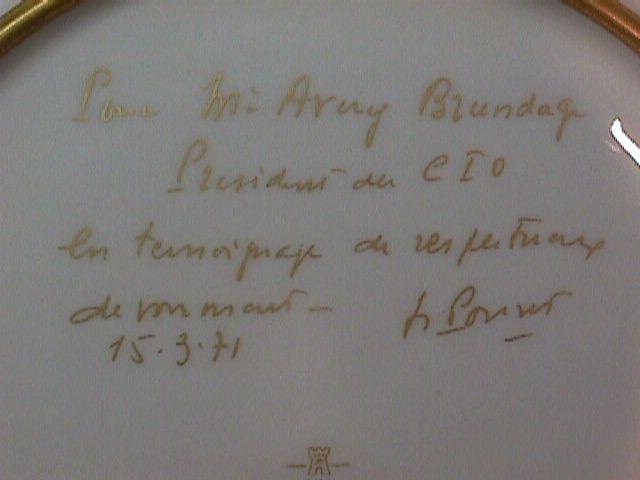 Pour Mr Avery Brundage
President du CIO
En temoignage de respectueux
devouement -
15.3.71